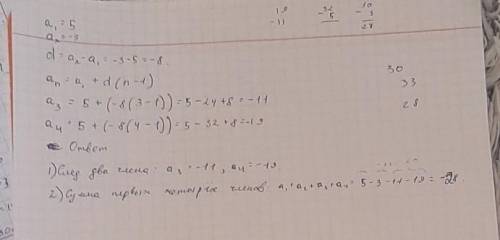 a₁ = 5
a₂ = -3
d = a₂ - a₁ = -3 - 5 = -8.
aₙ = a₁ + d(n-1)
a₃ = 5 + (-8(3-1)) = 5 - 24 + 8 = -11
a₄ = 5 + (-8(4-1)) = 5 - 32 + 8 = -19
Ответ
1) След два члена: a₃ = -11, a₄ = -19
2) Сумма первых четырех членов a₁+a₂+a₃+a₄ = 5-3-11-19 = -28.
19
-11
-32
5
-19
28
30
33
28